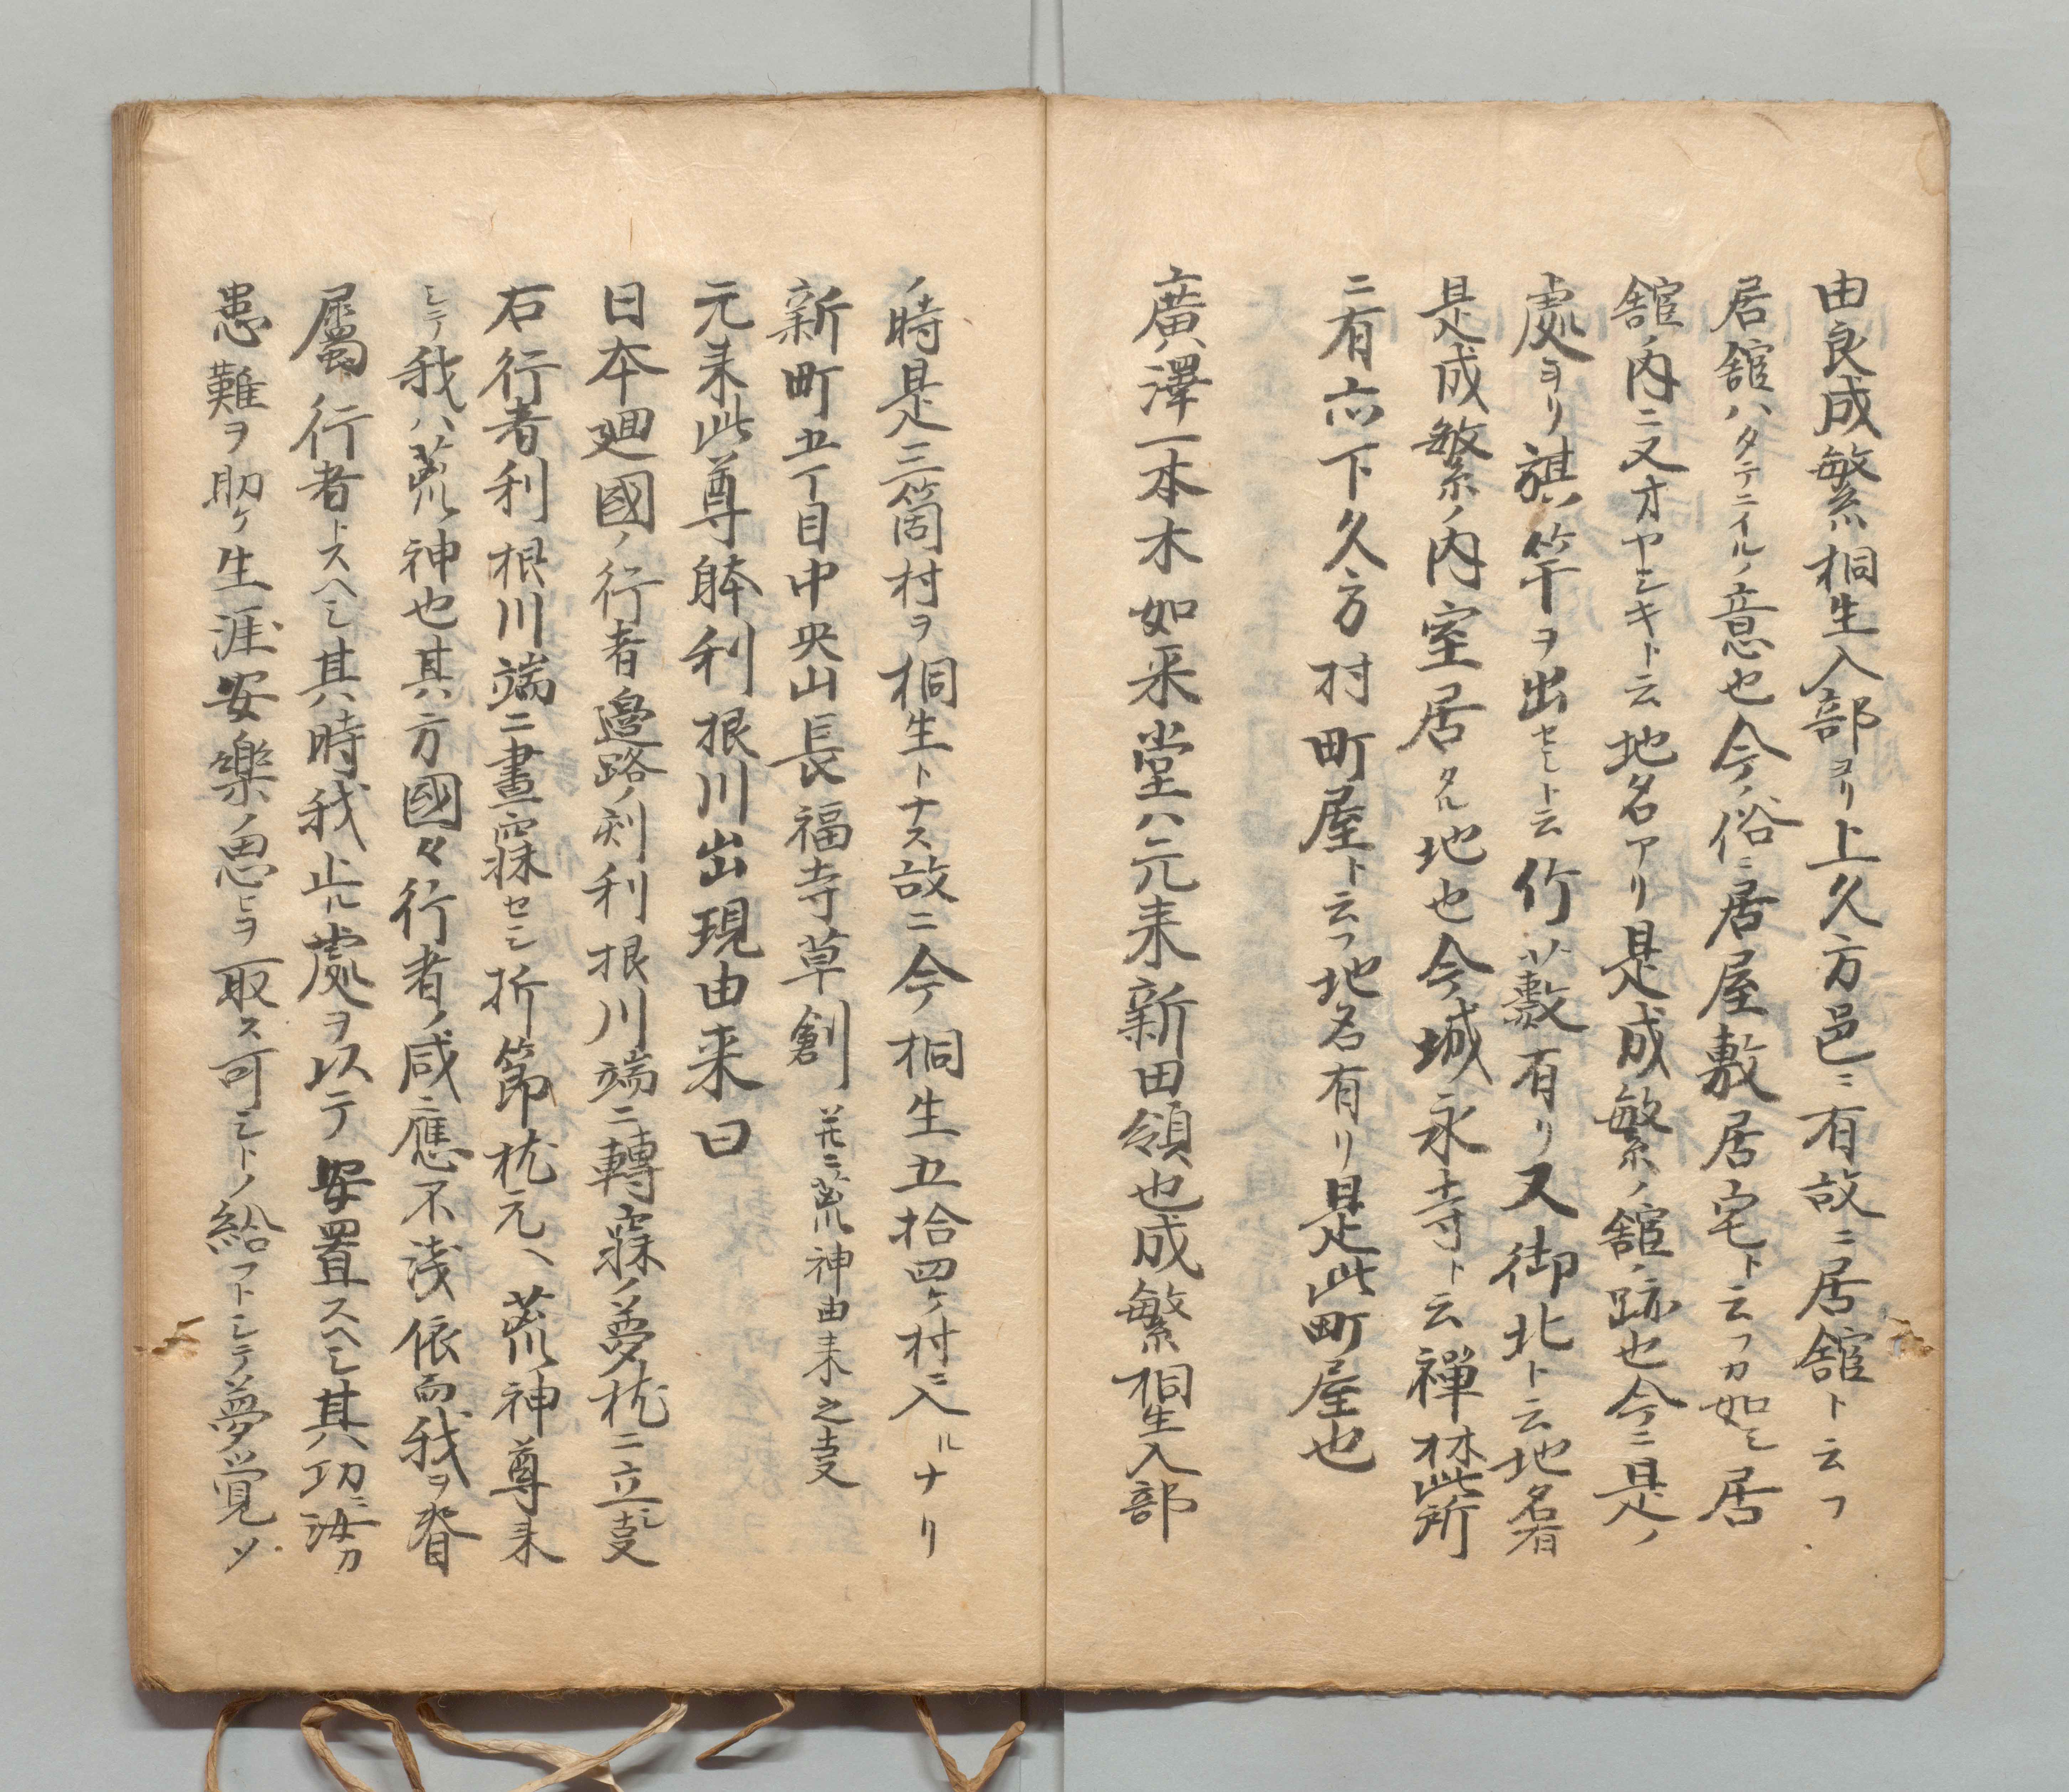 由良成繁桐生入部ヨリ上久方邑ニ有故ニ居舘ト云フ
居舘ハタテニイルノ意也今ノ俗ニ居屋敷居宅ト云フカ如シ居
舘ノ内ニ又オヤシキト云地名アリ是成繁ノ舘ノ跡也今ニ是ノ
處ヨリ旗竿ヲ出セシト云竹藪有リ又御北ト云地名有
是成繁ノ内室居タル地也今城永寺ト云禅林此所
ニ有亦下久方村町屋ト云フ地名有リ是此町屋也
廣澤一本木如来堂ハ元来新田領也成繁桐生入部
ノ時是三箇村ヲ桐生トナス故ニ今桐生五拾四ケ村ニ入ルナリ
新町五丁目中央山長福寺草創 并ニ荒神由来之支
元来此尊躰利根川出現由来曰
日本廻國ノ行者邉路ノ刻利根川端ニ轉寐ノ夢枕ニ立支
右行者利根川端ニ晝寐セシ折節枕元ヘ荒神尊来
シテ我ハ荒神也其方國々行者ノ感應不浅依而我ヲ眷
属行者トスヘシ其時我止ル處ヲ以テ安置スヘシ其功ニ汝カ
患難ヲ助ケ生涯安樂ノ思ヒヲ取ス可シトノ給フトシテ夢覚ソ